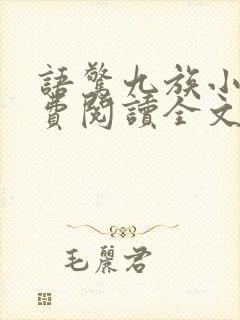 語驚九族小
費閱讀全文
毛麗君